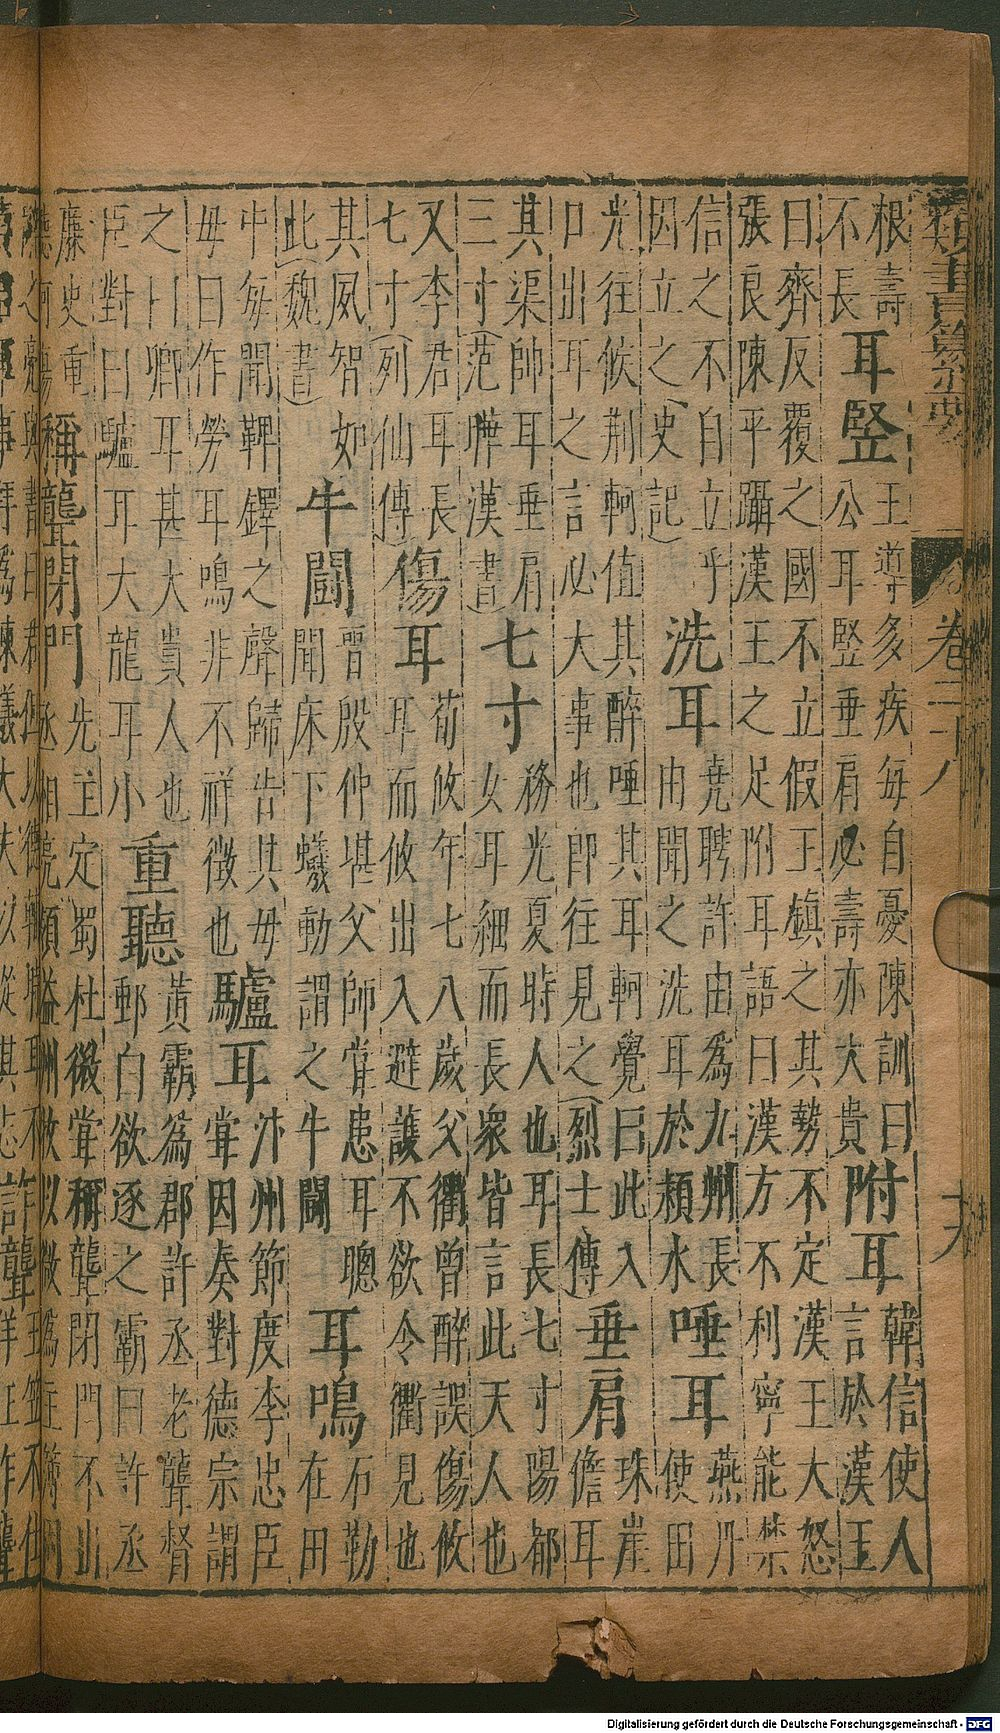 類書纂要
卷二十八
根壽不長耳竪王導多疾每自憂陳訓曰公耳竪垂肩必壽亦大貴附耳韓信使人言於漢王
曰齊反覆之國不立假王鎮之其勢不定漢王大怒張良陳平躡漢王之足附耳語曰漢方不利寧能禁
信之不自立乎因立之(史記)洗耳堯聘許由爲九州長由聞之洗耳於潁水唾耳燕丹使田
光往候荆軻值其醉唾其耳軻覺曰此入口出耳之言必大事也即往見之(烈士傳)垂肩珠崖儋耳
其渠帥耳垂肩三寸(范曄漢書)七寸務光夏時人也耳長七寸陽都女耳細而長衆皆言此天人也
又李君耳長七寸(列仙傳)傷耳荀攸年七八歲父衢曾醉誤傷攸耳而攸出入避護不欲令衢見也
其夙智如此(魏書)牛鬬晉殷仲堪父師甞患耳聰聞床下蟻動謂之牛鬬耳鳴石勒在田
中每聞鞞鐸之聲歸告其毋毋曰作勞耳鳴非不祥徵也驢耳汴州節度李忠臣甞因奏對德宗謂
之曰卿耳甚大貴人也臣對曰驢耳大龍耳小重聽黃霸爲郡許丞老聾督郵白欲逐之霸曰許丞
廉史重聽何傷稱聾閉門先主定蜀杜微甞稱聾閉門不出丞相亮領益州牧以微爲主簿
Digitalisierung gefördert durch die Deutsche Forschungsgemeinschaft - DFG